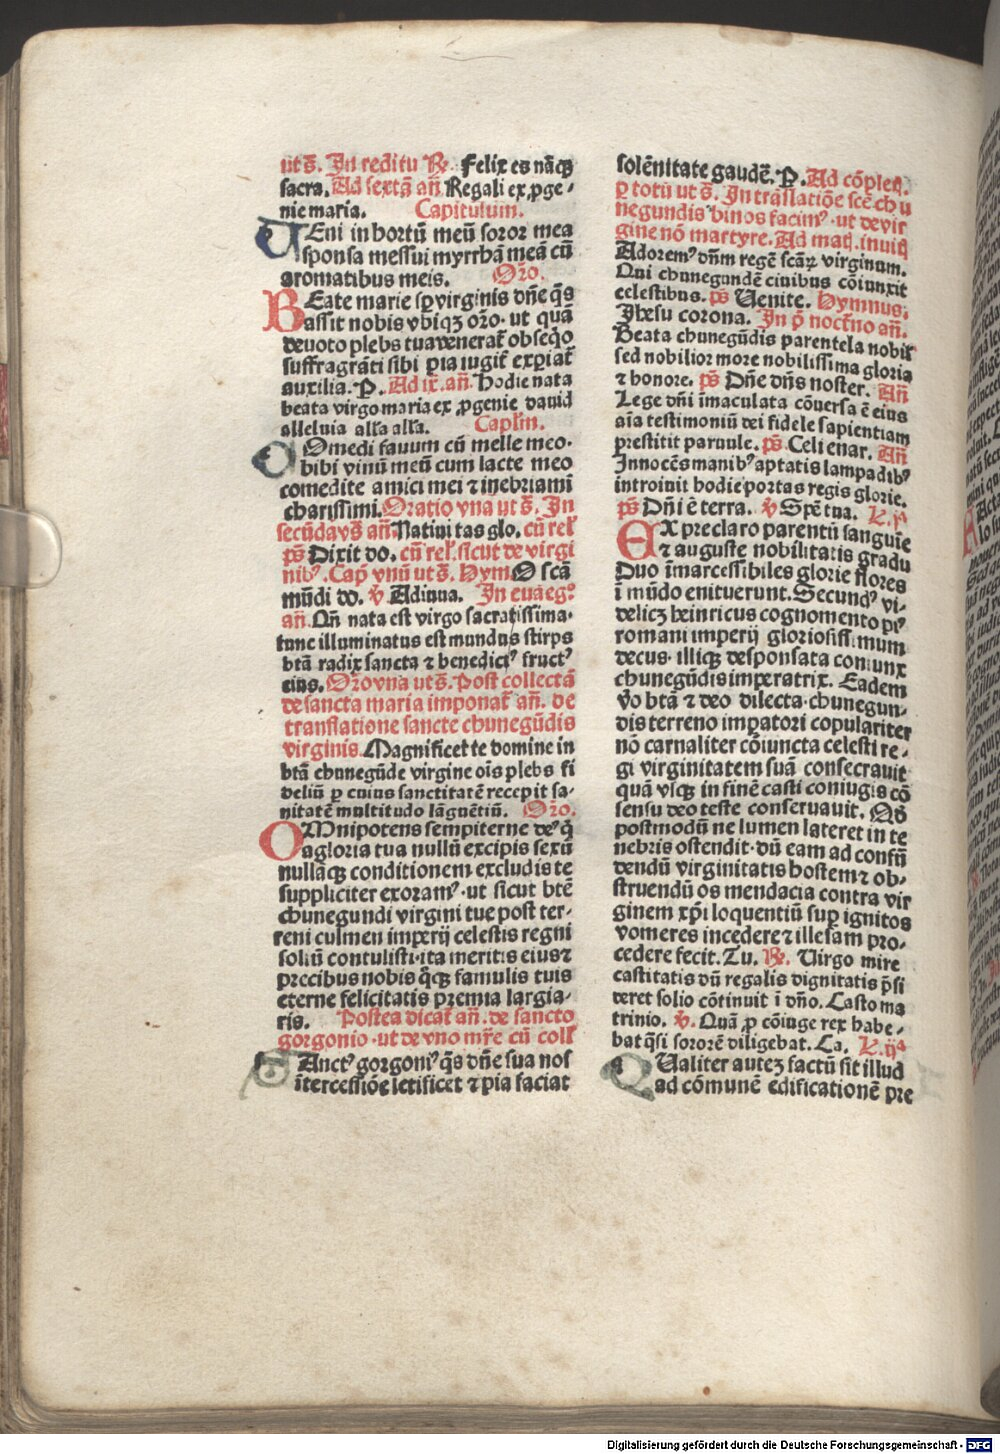 ut s̄. In reditu ℟. Felix es nāqꝫ
sacra. Ad sextā an̄ Regali ex ꝓge-
nie maria. Capitulum.
UEni in hortū meū soror mea
sponsa messui myrrhā meā cū
aromatibus meis. Or̄o.
BEate marie sꝑ virginis dn̄e q̄s
assit nobis vbiqꝫ or̄o· ut quā
deuoto plebs tua venerat̄ obseq̇o
suffragrāti sibi ꝑia iugit̄ exꝑiat̄
auxilia. P. Ad ix. an̄. Hodie nata
beata virgo maria ex ꝓgenie dauid
alleluia alľa alľa. Caplm̄.
COmedi fauum cū melle meo·
bibi vinū meū cum lacte meo
comedite amici mei ⁊ inebriami
charissimi. Oratio vna ut s̄. In
secūda vs̄ an̄. Natiui tas glo. cū rel̄
ps̄ Dixit do. cū rel̄. sicut de virgi
nibꝰ. Cap̄ vnū ut s̄. Hym O scā
mūdi do. ℣ Adiuua. In euāeg.
an̄. Qn̄ nata est virgo sacratissima·
tunc illuminatus est mundus stirps
btā radix sancta ⁊ benedictꝰ fructꝰ
eius. Or̄o vna ut s̄. Post collectā
de sancta maria imponat̄ an̄. de
translatione sancte chunegūdis
virginis. Magnificet te domine in
btā chunegūde virgine ois̄ plebs fi
deliū ꝑ cuius sanctitatē recepit sa-
nitatē multitudo lāgnētiū. Or̄o.
OMnipotens sempiterne deꝰ q̇
a gloria tua nullū excipis sexū
nullāqꝫ conditionem excludis te
suppliciter exoramꝰ· ut sicut btē
chunegundi virgini tue post ter-
reni culmen imperij celestis regni
soliū contulisti· ita meritis eius ⁊
precibus nobis q̇qꝫ famulis tuis
eterne felicitatis premia largia-
ris. Postea dicat̄ an̄. de sancto
gorgonio· ut de vno mr̄e cū coll̄
SAnctꝰ gorgoniꝰ q̄s dn̄e sua nos
ītercessiōe letificet ⁊ pia faciat
solēnitate gaudē̄. P. Ad cōplet̄.
ꝑ totū ut s̄. In trāslatiōe scē chu
negundis binos facimꝰ· ut de vir
gine nō martyre. Ad mat̄. inuit̄
Adoremꝰ dn̄m regē scāꝝ virginum.
Qui chunegundē ciuibus cōiunxit
celestibus. ps̄ Uenite. Hymnus.
Jhesu corona. In p̄ noct̄no an̄.
Beata chunegūdis parentela nobil̄
sed nobilior more nobilissima gloria
⁊ honore. ps̄ Dn̄e dn̄s noster. An̄
Lege dn̄i īmaculata cōuersa ē eius
aīa testimoniū dei fidele sapientiam
prestitit paruule. ps̄ Celi enar. An̄
Innocēs manibꝰ aptatis lampadibꝰ
introiuit hodie portas regis glorie.
ps̄ Dn̄i ē terra. ℣ Spē tua. L. jᵃ
EX preclaro parentū sanguīe
⁊ auguste nobilitatis gradu
Duo īmarcessibiles glorie flores
ī mūdo enituerunt. Secundꝰ vi-
delicꝫ heinricus cognomento piꝰ
romani imperij gloriosissimum
decus· illiqꝫ desponsata coniunx
chunegūdis imperatrix. Eadem
ṽo btā ⁊ deo dilecta· chunegun-
dis terreno impatori copulariter
nō carnaliter cōiuncta celesti re-
gi virginitatem suā consecrauit
quā vsqꝫ in finē casti coniugis cō
sensu deo teste conseruauit. Qd̄
postmodū ne lumen lateret in te
nebris ostendit· dū eam ad confū
dendū virginitatis hostem ⁊ ob-
struendū os mendacia contra vir
ginem xp̄i loquentiū suꝑ ignitos
vomeres incedere ⁊ illesam pro-
cedere fecit. Tu. ℟. Uirgo mire
castitatis dū regalis dignitatis p̄si
deret solio cōtinuit ī dn̄o. Casto ma
trinio. ℣. Quā ꝓ cōiuge rex habe-
bat q̇si sororē diligebat. Ca. L. ijᵃ
QUaliter autez factū sit illud
ad cōmunē edificationē pre
Digitalisierung gefördert durch die Deutsche Forschungsgemeinschaft - DFG